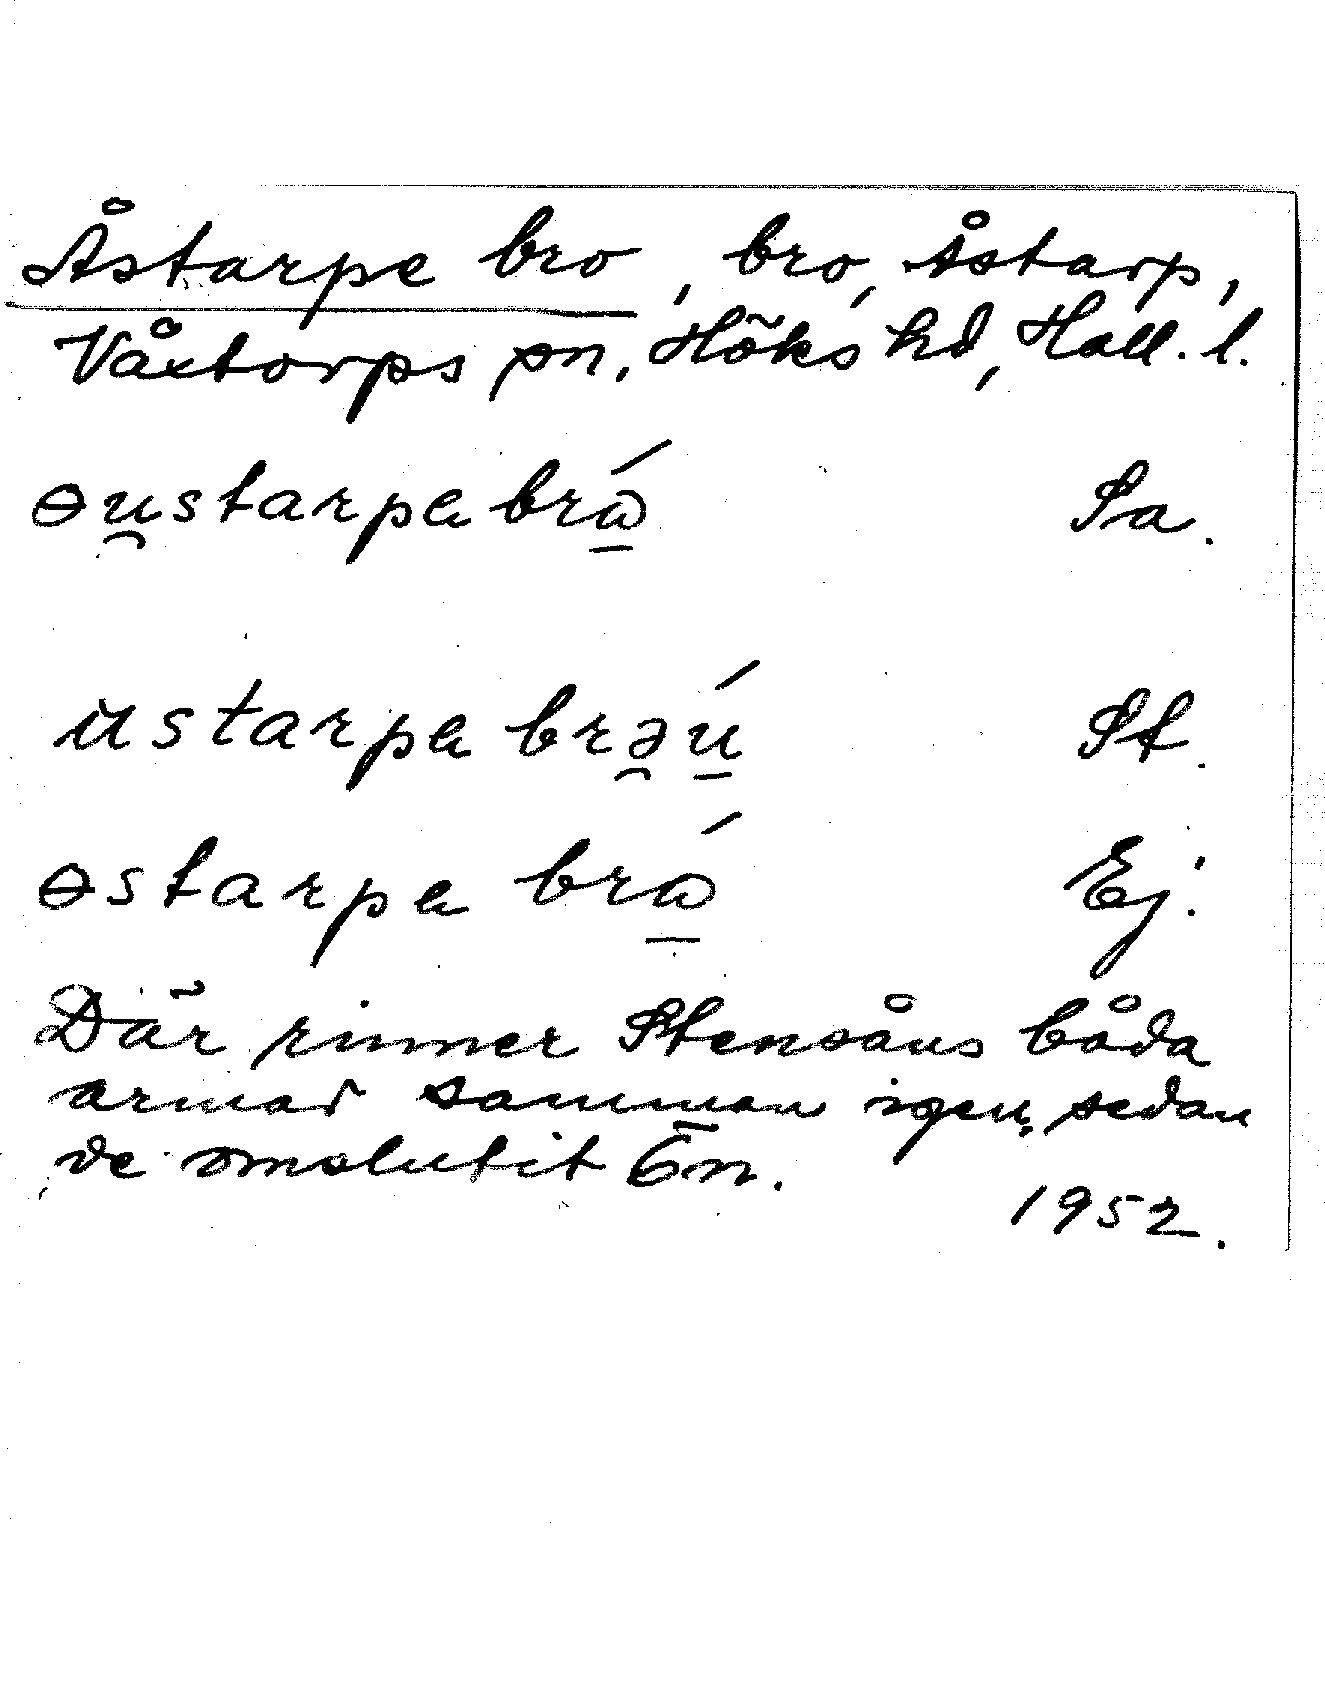 Åstarpe bro, bro, Åstarp,
Våxtorps sn, Höks hd, Hall. l.
ɵu̯starpa brǻ Sa.
ustarpa brə̯ú St.
ɵstarpa brǻ Ej.
Där rinner Stensåns båda
armar samman igen, sedan
de omslutit Ön.
1952.